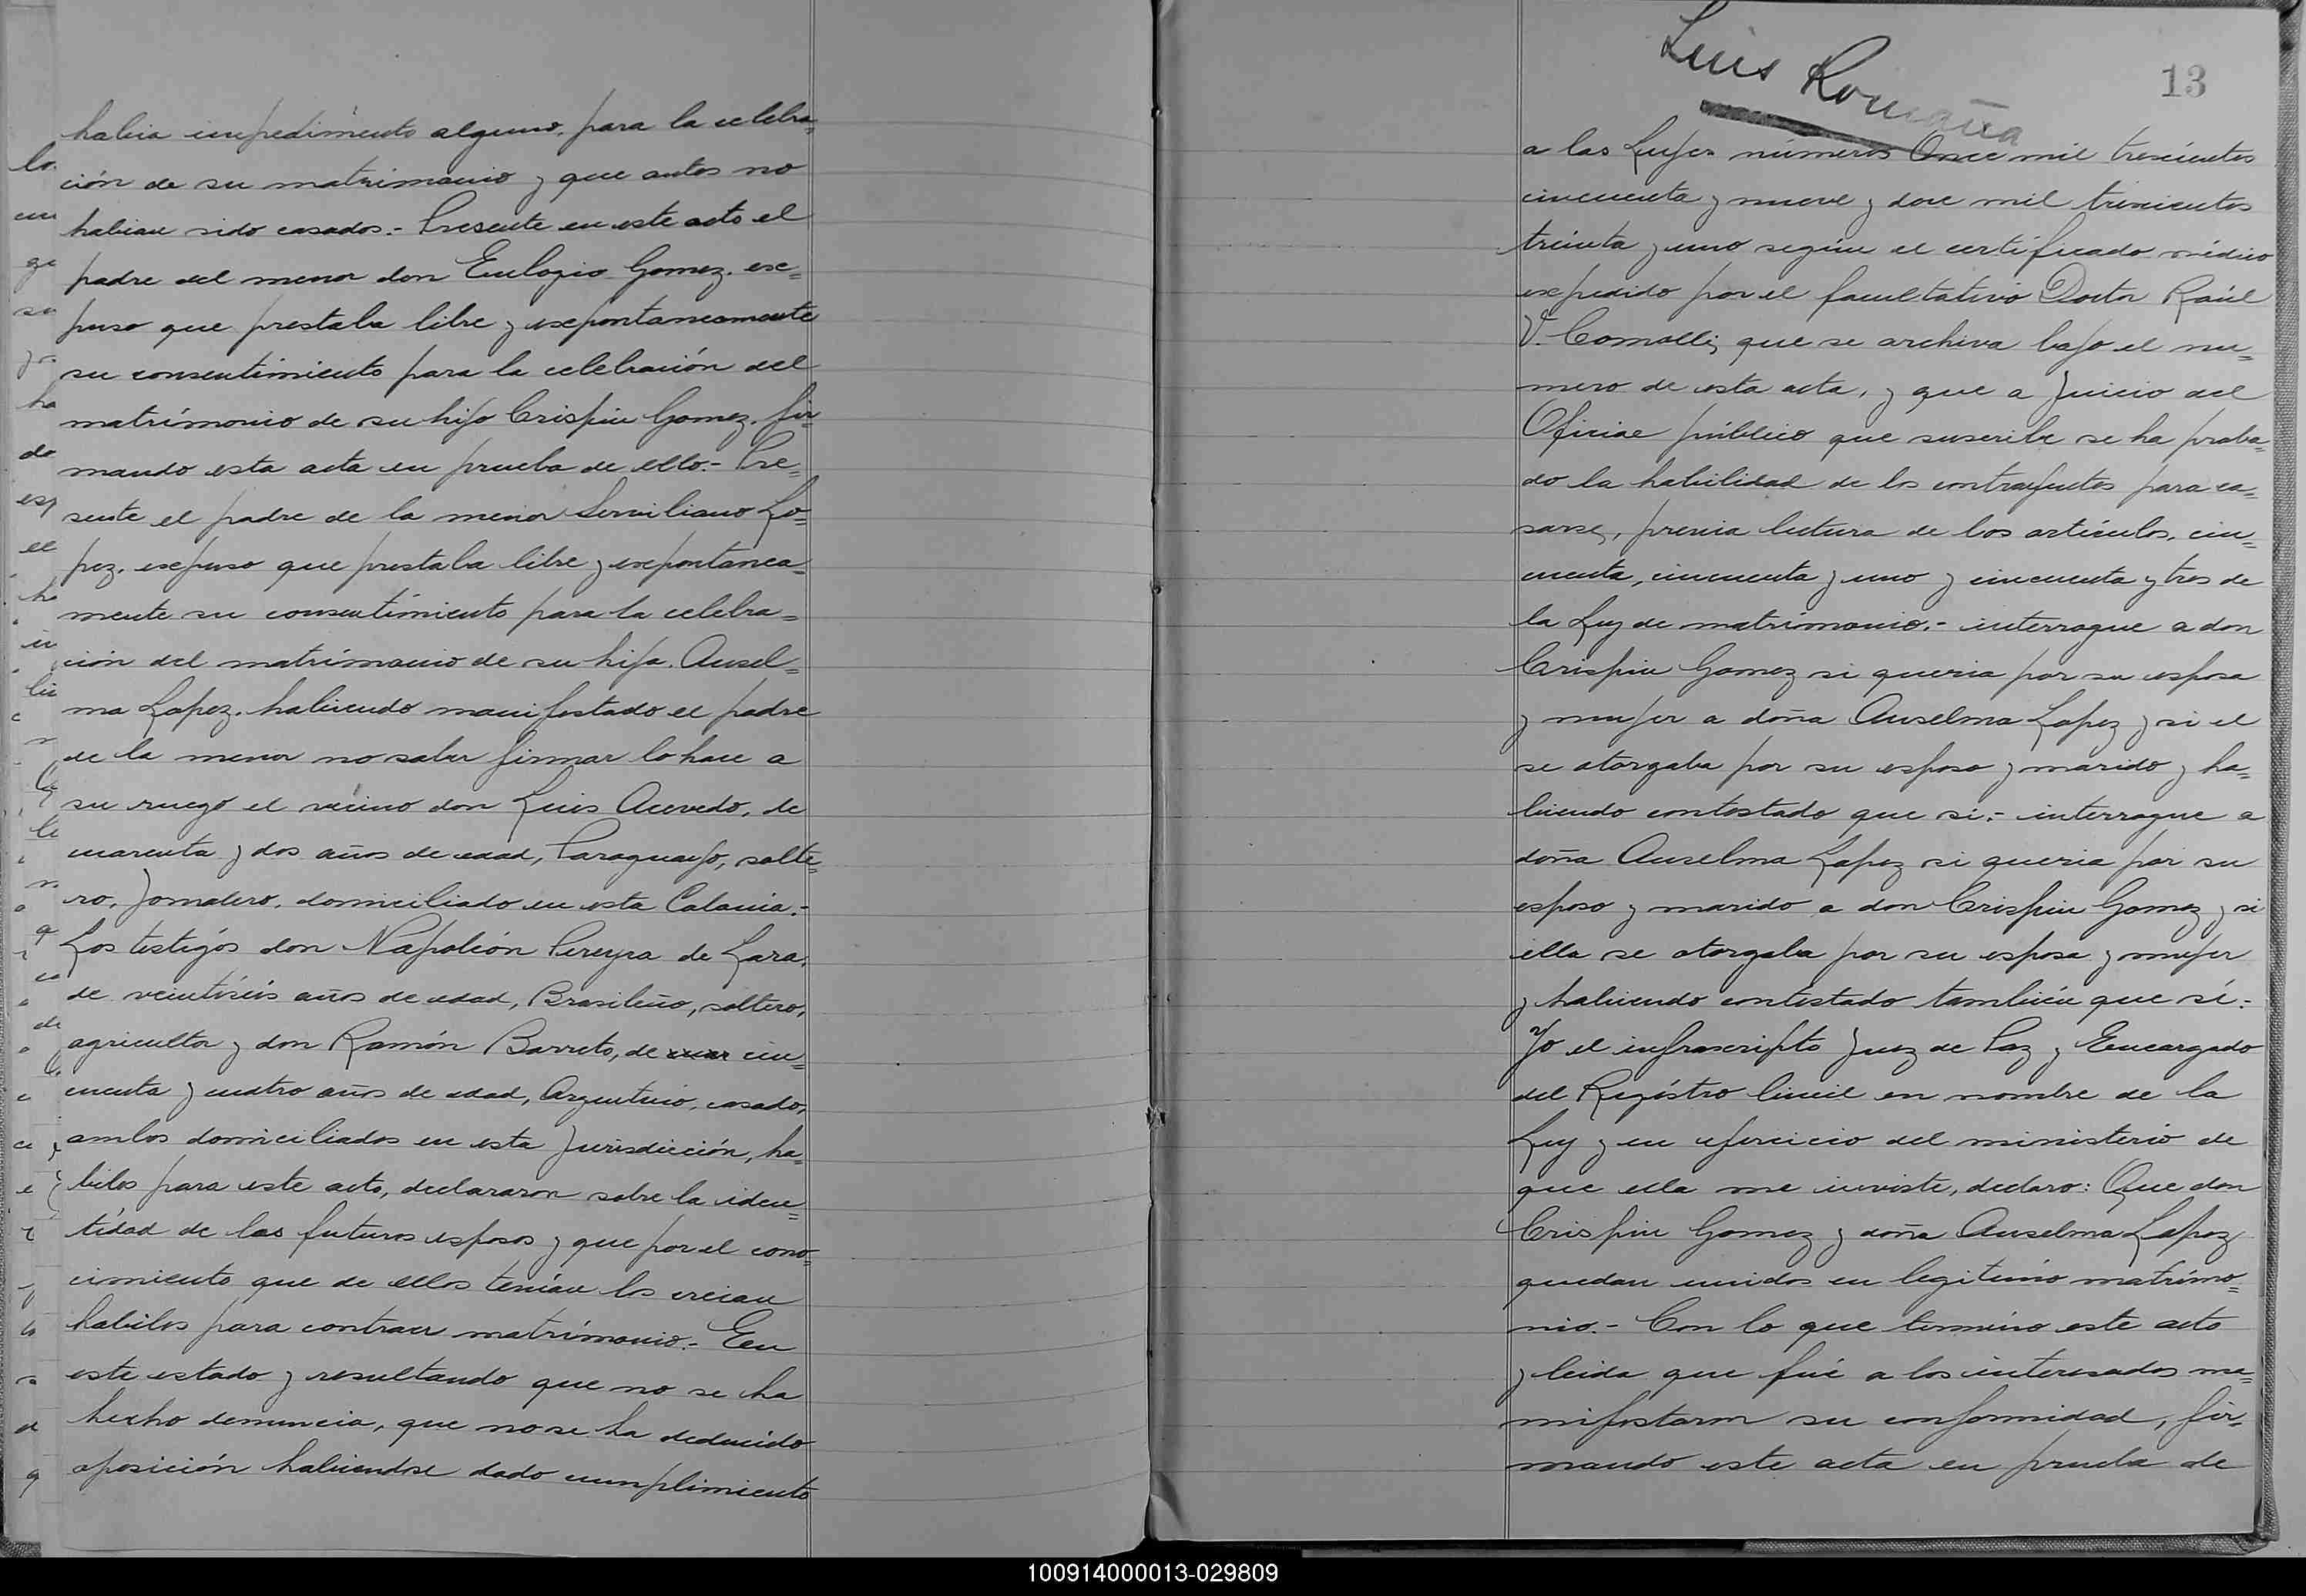 habia impedimento alguno, para la celebra=
ción de su matrimonio y que antes no
habian sido casados.- Presente en este acto el
padre del menor don Eulogio Gomez. ex=
puso que prestaba libre y expontaneamente
su consentimiento para la celebración del
matrimonio de su hijo Crispin Gomez. fir=
mando esta acta en prueba de ello.- Pre=
sente el padre de la menor Serviliano Lo=
pez. expuso que prestaba libre y expontanea=
mente su consentimiento para la celebra=
ción del matrimonio de su hija. Ansel=
ma Lopez. habiendo manifestado el padre
de la menor no saber firmar lo hace a
su ruego el vecino don Luis Acevedo, de
cuarenta y dos años de edad, Paraguayo, solte=
ro, Jornalero, domiciliado en esta Colonia.-
Los testigos don Napoleón Pereyra de Lara,
de veintiséis años de edad, Brasileño, soltero,
agricultor y don Ramón Barreto, de cin=
cuenta y cuatro años de edad, Argentino, casado,
ambos domiciliados en esta Jurisdicción, ha=
biles para este acto, declararon sobre la iden=
tidad de los futuros esposos y que por el cono=
cimiento que de ellos tenían los creian
habiles para contraer matrimonio.- En
este estado y resultando que no se ha
hecho denuncia, que no se ha deducido
oposición habiendose dado cumplimiento
Luis Romaña
13
a las Leyes números Once mil trescientos
cincuenta y nueve y doce mil trescientos
treinta y uno según el certificado médico
expedido por el facultativo Doctor Raúl
V. Comolli, que se archiva bajo el nu=
mero de esta acta, y que a Juicio del
Oficial público que suscribe se ha proba=
do la habilidad de los contrayentes para ca=
sarse, previa lectura de los artículos, cin=
cuenta, cincuenta y uno y cincuenta y tres de
la Ley de matrimonio.- interrogue a don
Crispin Gomez si queria por su esposa
y mujer a doña Anselma Lopez y si el
se otorgaba por su esposo y marido y ha=
biendo contestado que si.- interrogue a
doña Anselma Lopez si queria por su
esposo y marido a don Crispin Gomez y si
ella se otorgaba por su esposa y mujer
y habiendo contestado también que sí.-
Yo el infrascripto Juez de Paz y Encargado
del Registro Civil en nombre de la
Ley y en ejercicio del ministerio de
que ella me inviste, declaro: Que don
Crispin Gomez y doña Anselma Lopez
quedan unidos en legitimo matrimo=
nio.- Con lo que termino este acto
y leida que fué a los interesados ma=
nifestaron su conformidad, fir=
mando este acta en prueba de
100914000013-029809